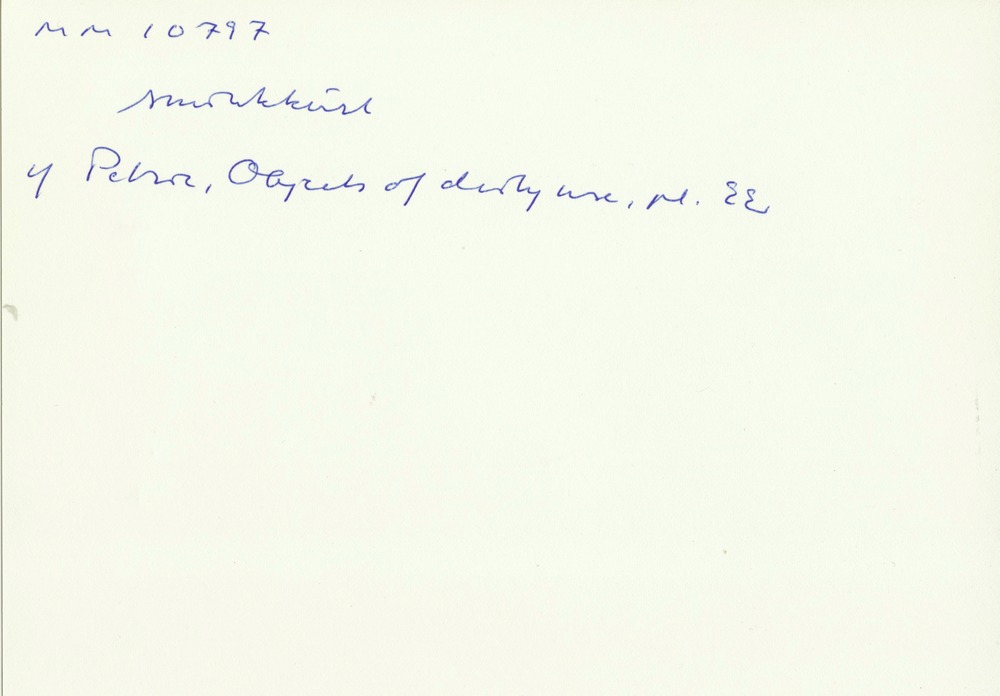 MM 10797
sminkkärl
cf Petrie, Objects of daily use, pl. 22